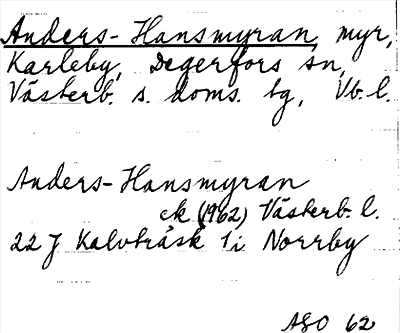 Anders-Hansmyran, myr,
Karleby, Degerfors sn,
Västerb. s. doms. tg, Vb. l.
Anders-Hansmyran
ek (1962) Västerb. l.
22 J Kalvträsk 1i Norrby
ASO 62